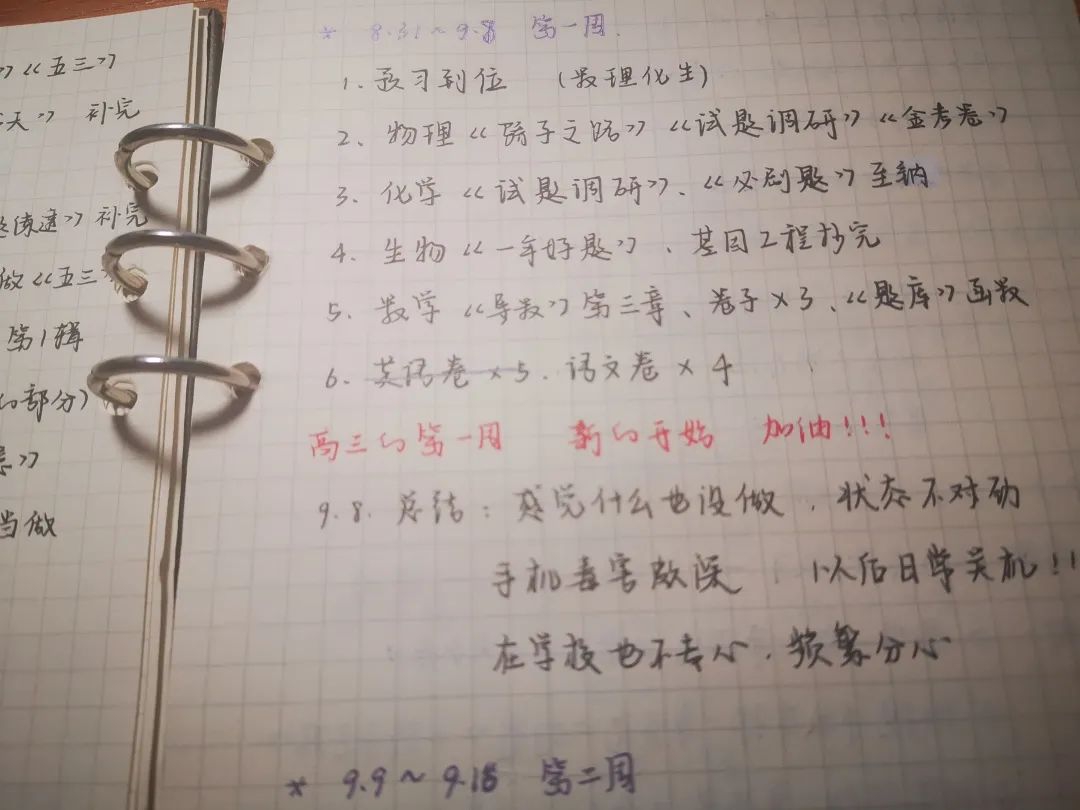 》《五三》
天》 补完
速》补完
做《五三
第1辑
的部分)
》
当做
* 8.31~9.8 第一周.
1. 预习到位 (数理化生)
2. 物理《骄子之路》《试题调研》《金考卷》
3. 化学《试题调研》、《必刷题》至纳
4. 生物《一年好题》、基因工程抄完
5. 数学《导数》第三章、卷子×3、《题库》函数
6. 英语卷×5. 语文卷×4
高三的第一周 新的开始 加油!!!
9.8. 总结: 感觉什么也没做, 状态不对劲
手机毒害颇深 以后日常关机!!
在学校也不专心, 频繁分心
* 9.9~9.15 第二周